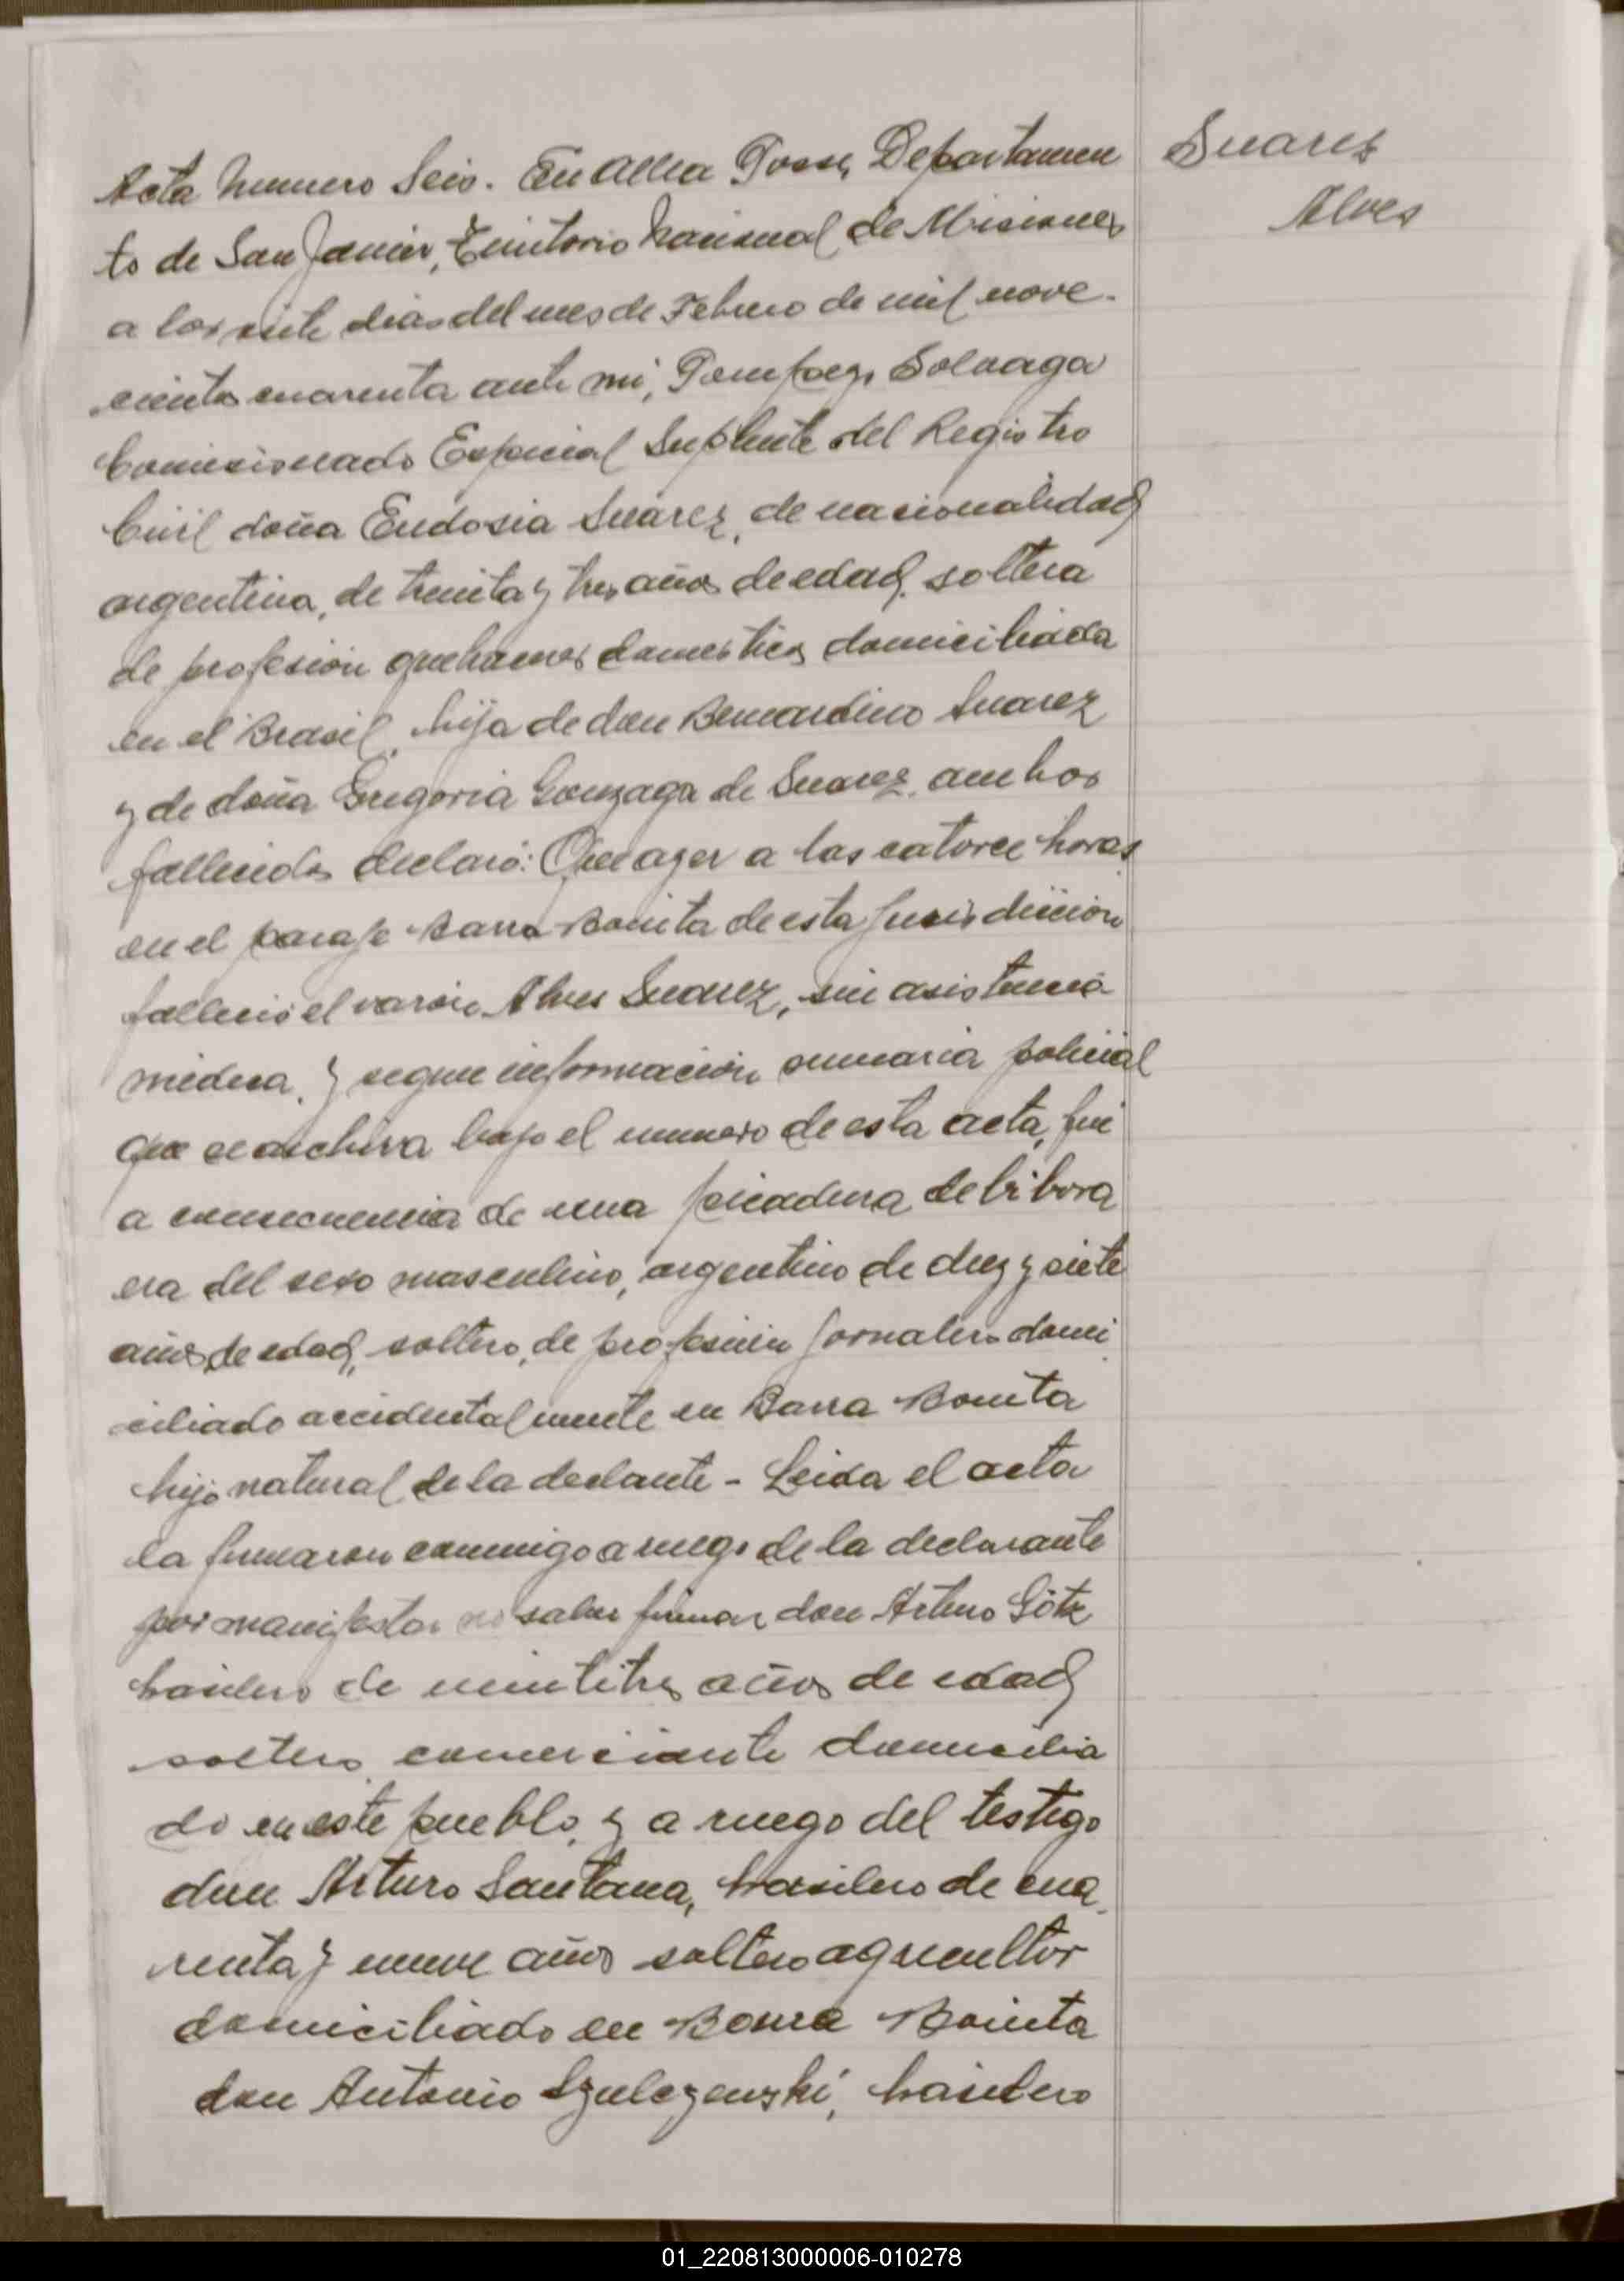 Acta Numero Seis. En Alba Posse, Departamen
to de San Javier, Territorio Nacional de Misiones
a los siete dias del mes de Febrero de mil nove-
cientos cuarenta ante mi, Pompeyo Solvaga
Comisionado Especial Suplente del Registro
Civil doña Eudosia Suárez, de nacionalidad
argentina, de treinta y tres años de edad, soltera
de profesión quehaceres domesticos domiciliada
en el Brasil, hija de don Bernardino Suarez
y de doña Gregoria Gonzaga de Suarez, ambos
fallecidos declaró: Que ayer a las catorce horas
en el paraje Barra Bonita de esta Jurisdicción
falleció el varón Alves Suarez, sin asistencia
medica, y segun información sumaria policial
que se archiva bajo el numero de esta acta, fue
a consecuencia de una picadura de bibora
era del sexo masculino, argentino de diez y siete
años de edad, soltero, de profesión jornalero domi
ciliado accidentalmente en Barra Bonita
hijo natural de la declante - Leida el acta
la firmaron conmigo a ruego de la declarante
por manifestar no saber firmar don Arturo Götz
brasilero de veintitres años de edad
soltero comerciante domicilia
do en este pueblo, y a ruego del testigo
don Arturo Santana, brasilero de cua
renta y nueve años soltero agricultor
domiciliado en Barra Bonita
don Antonio Szulczewski, brasilero
Suares
Alves
01_220813000006-010278